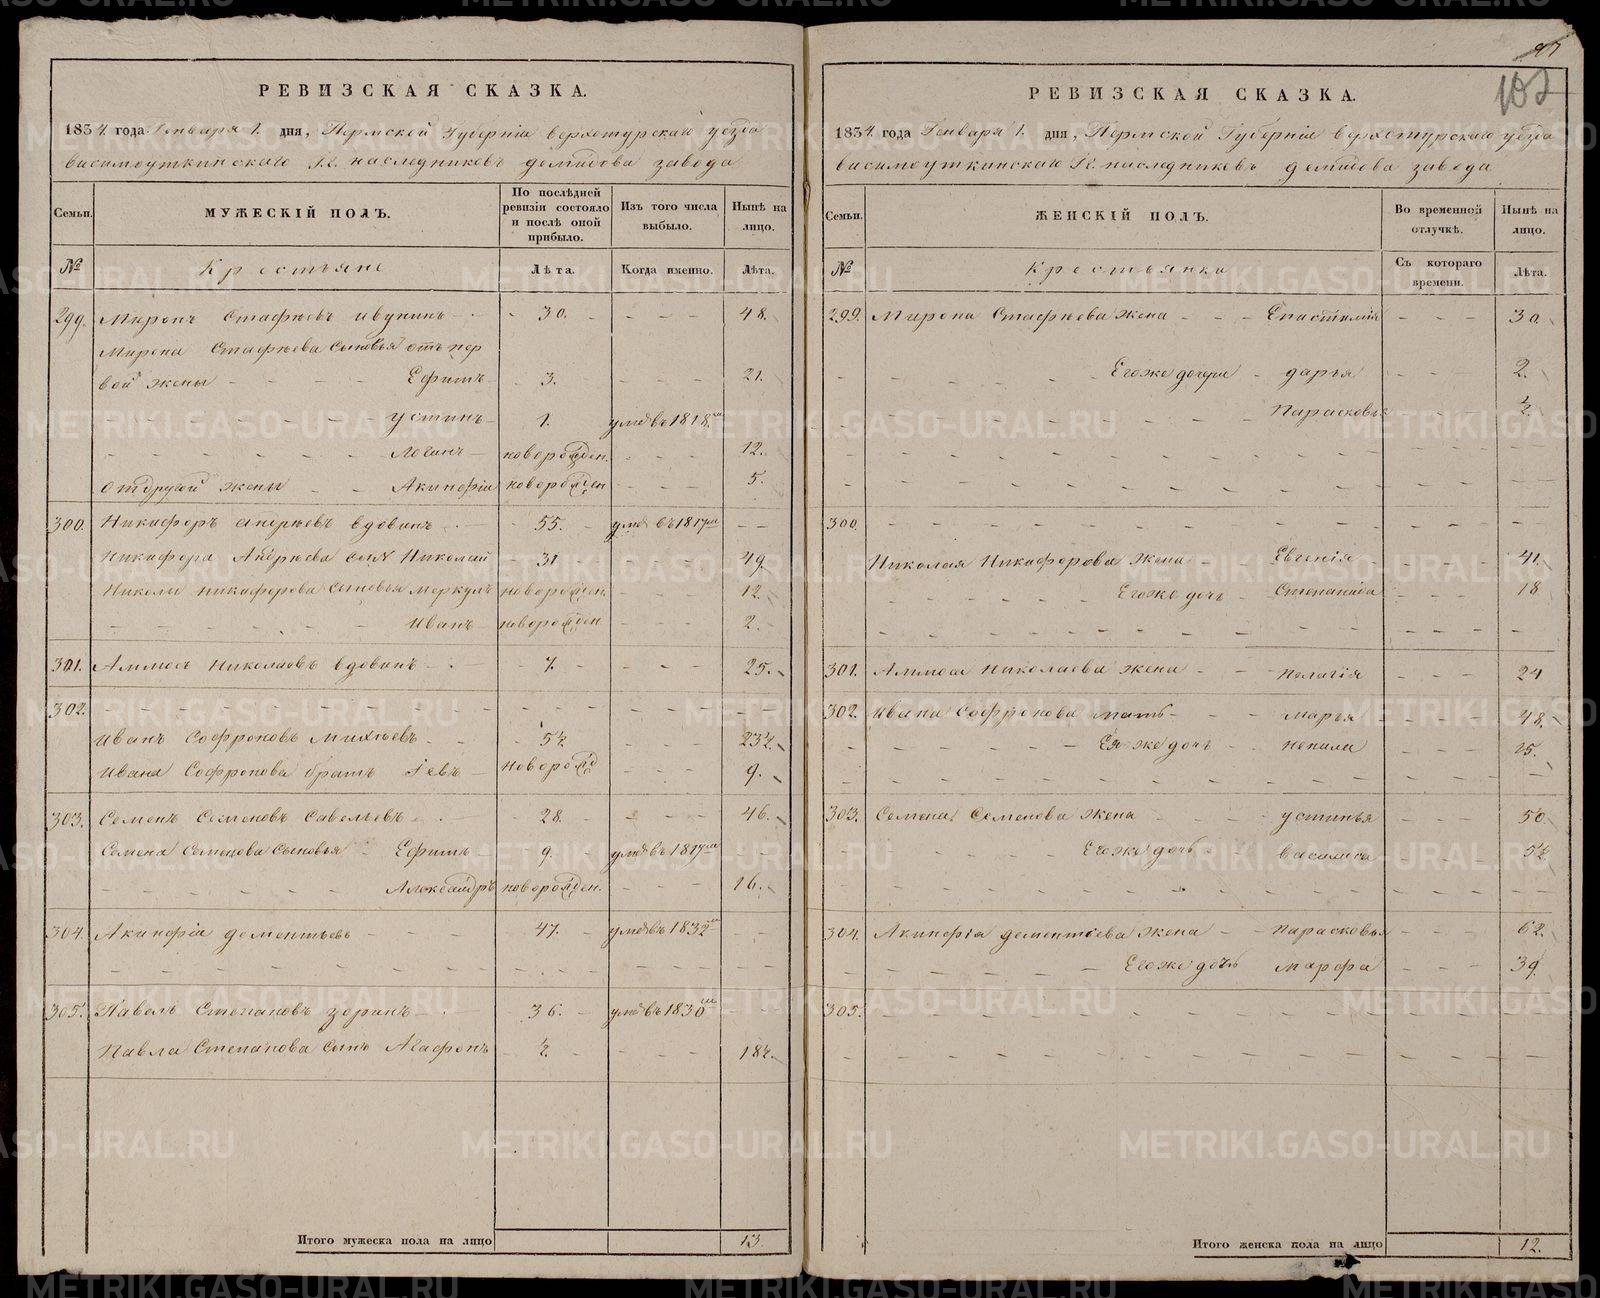 97
102
РЕВИЗСКАЯ СКАЗКА.
1834. года Генваря 1. дня, Пермской Губерніи верхотурскаго уезда
висимоуткинскаго Н. наследниковъ демидова завода
Семьи.
МУЖЕСКІЙ ПОЛЪ.
По послѣдней ревизіи состояло и послѣ оной прибыло.
Изъ того числа выбыло.
Нынѣ на лицо.
№ Крестьяне Лѣта. Когда именно. Лѣта.
299. Миронъ Стафѣевъ 30. 48.
Мирона Стафѣева сыновья отъ пер
вой жены Ефимъ 3. 21.
Устинъ 1. умеръ въ 1818.мъ
Логинъ новорожден. 12.
от другой жены Акинфій новорожден 5.
300. Никифоръ Андреевъ вдовинъ 55. умеръ въ 1817мъ
Никифора Андреева сынъ Николай 31 49.
Николы никифорова сыновья меркулъ новорожден. 12.
Иванъ новорожден 2.
301. Аммосъ Николаевъ вдовинъ 7. 25.
302.
Иванъ Софроновъ Михѣевъ 5½ 23½.
Ивана Софронова братъ Іевъ новорожд 9.
303. Семенъ Семеновъ Савельевъ 28. 46.
Семена Семенова сыновья Ефимъ 9. умеръ въ 1817мъ
Александръ новорожден. 16.
304. Акинфій дементьевъ 47. умеръ въ 1832мъ
305. Павелъ Степановъ зоринъ 36. умеръ въ 1830мъ
Павла Степанова сынъ Агафонъ ½ 18½.
Итого мужеска пола на лицо 13.
РЕВИЗСКАЯ СКАЗКА.
1834. года Генваря 1. дня, Пермской Губерніи верхотурскаго уезда
висимоуткинскаго Н. наследниковъ демидова завода
Семьи.
ЖЕНСКІЙ ПОЛЪ.
Во временной отлучкѣ.
Нынѣ на лицо.
№ Крестьянки Съ котораго времени. Лѣта.
299. Мирона Стафѣева жена 30.
Его же дочери дарья 2.
Парасковья ½
300.
Николая Никифорова жена Евгенія 41.
Его же дочь Степанида 18
301. Аммоса Николаева жена пелагія 24
302. Ивана Софронова мать марья 48.
Ея же дочь ненила 15.
303. Семена Семенова жена устинья 50.
Его же дочь василиса 5½
304. Акинфія дементьева жена парасковья 62.
Его же дочь марфа 39.
305.
Итого женска пола на лицо 12.
METRIKI.GASO-URAL.RU